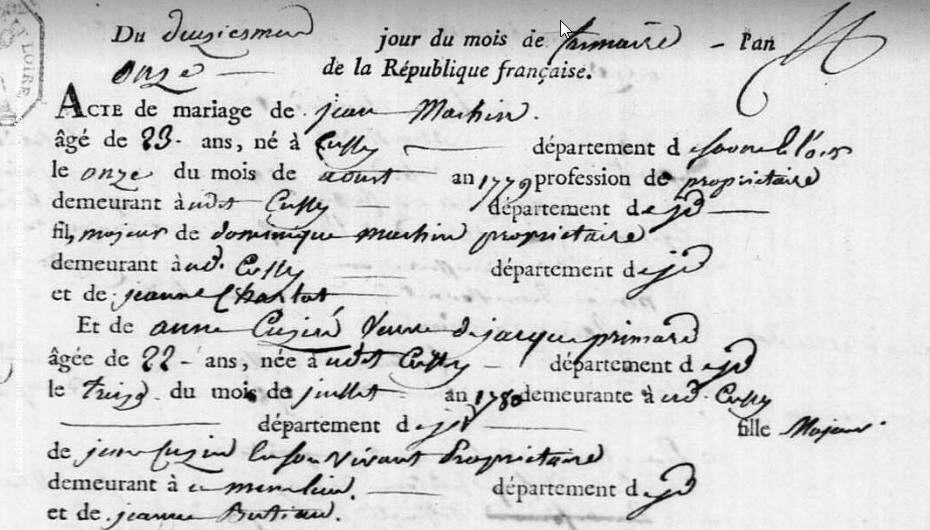 LOIRE
Du deuxiesme jour du mois de frimaire - l'an
onze de la République française.
ACTE de mariage de jean Machin.
âgé de 23. ans, né à Cussy département d saone & loire
le onze du mois de aoust an 1779 profession de propriétaire
demeurant à udt Cussy département de jd
fils majeur de dominique machin propriétaire
demeurant à ud. Cussy département de jd
et de jeanne Charlot
Et de anne Cuziné Veuve de jacque primard
âgée de 22 - ans, née à udt Cussy - département d jd
le treize du mois de juillet an 1780 demeurante à ud. Cussy
département de jd fille Majeur
de jean Cuzin en son vivant Propriétaire
demeurant à département d jd
et de jeanne